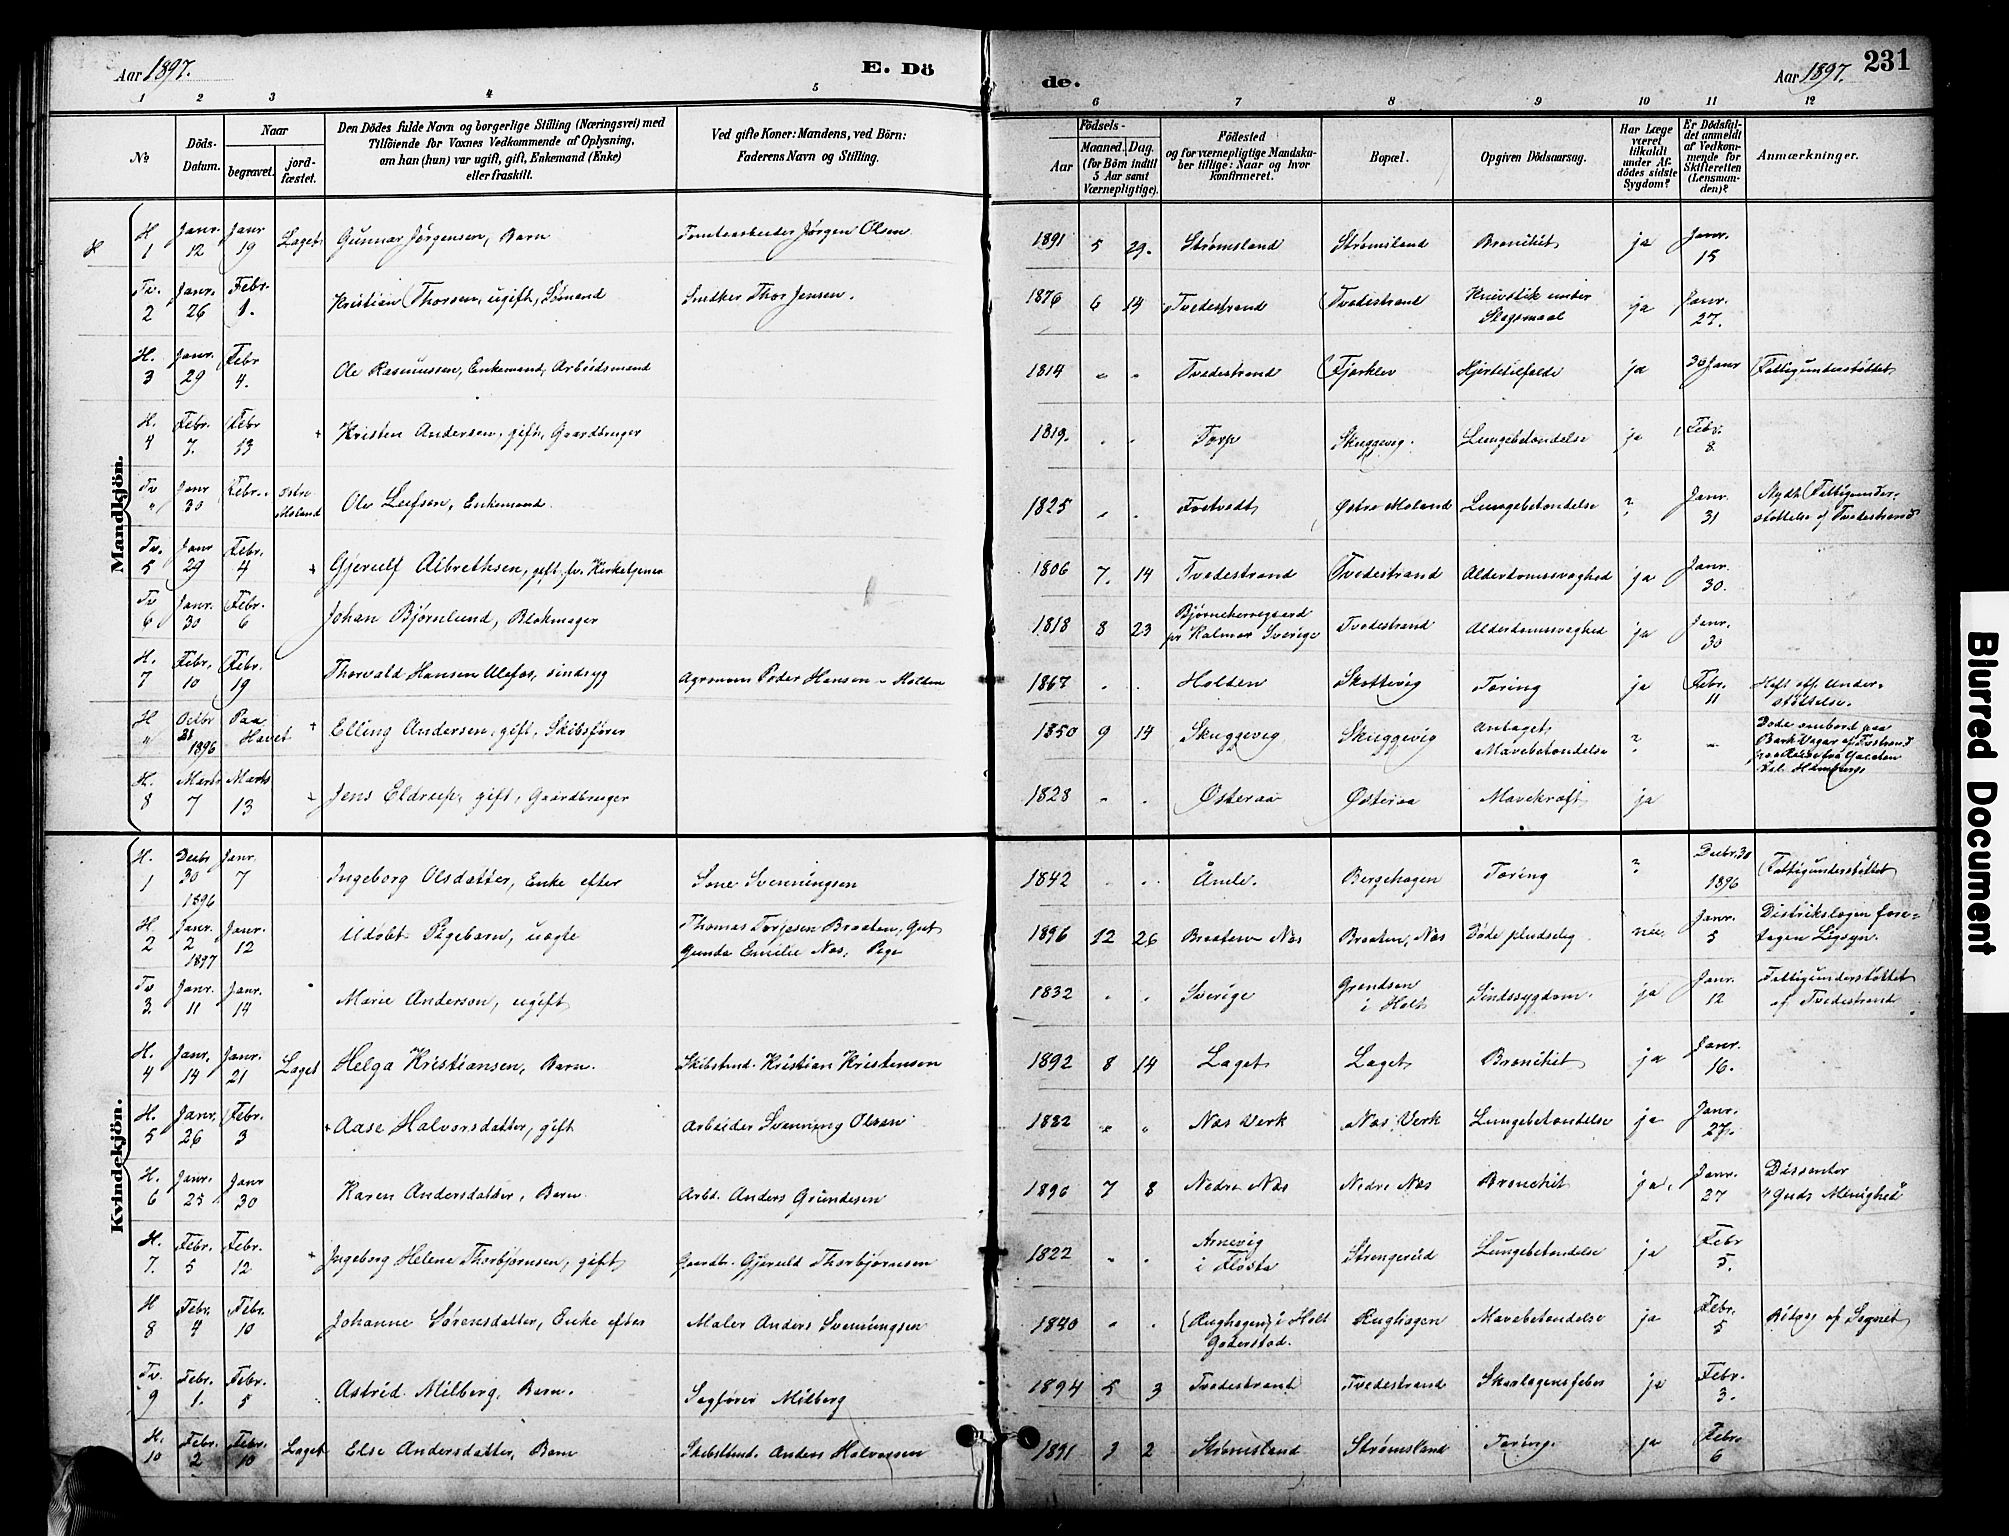 Aar 1897.
E. Dö
de.
Aar 1897.
231
1 2 3 4 5 6 7 8 9 10 11 12
No
Döds-Datum.
Naar
begravet.
jord-fæstet.
Den Dödes fulde Navn og borgerlige Stilling (Næringsvei) med
Tilföiende for Voxnes Vedkommende af Oplysning,
om han (hun) var ugift, gift, Enkemand (Enke)
eller fraskilt.
Ved gifte Koner: Mandens, ved Börn:
Faderens Navn og Stilling.
Födsels-
Aar
Maaned. Dag.
(for Börn indtil
5 Aar samt
Værnepligtige).
Födested
og for værnepligtige Mandska-
ber tillige: Naar og hvor
konfirmeret.
Bopæl.
Opgiven Dödsaarsag.
Har Læge
været
tilkaldt
under Af-
dödes sidste
Sygdom?
Er Dödsfal-
det anmeldt
af Vedkom-
mende for
Skifteretten
(Lensman-
den)?
Anmærkninger.
Mandkjön.
H. 1 Janr. 12 Janr 19 Laget Gunnar Jørgensen, Barn Tomtearbeider Jørgen Olsen 1891 5 29. Strømsland Strømsland Bronkit ja Janr. 15
Tv. 2 Janr. 26 Febr. 1. Kristian Thorsen, ugift, Sømand Snedker Thor Jensen. 1876 6 14 Tvedestrand Tvedestrand Knivstik under Slagsmaal ja Janr. 27.
H. 3 Janr. 29 Febr 4. Ole Rasmussen, Enkemand, Arbeidsmand 1814 " " Tvedestrand Fjærklev Hjertetilfælde ja 30 Janr Fattigunderstøttet
H. 4 Febr. 7. Febr 13 + Kristen Andersen, gift, Gaardbruger 1819. " " Torp Skuggevig. Lungebetændelse ja Febr. 8
Tv " Janr 30 Febr. Østre Moland Ole Leefsen, Enkemand 1825 " " Østre Moland Lungebetændelse ? Janr. 31 Nydt Fattigunder-
støttelse af Tvedestrand
Tv. 5 Janr 29 Febr. 4 + Gjerulf Albrethsen, gift, fv. Kirketjener 1806 7. 14 Tvedestrand Tvedestrand Alderdomssvaghed ja Janr. 30.
Tv 6 Janr. 30 Febr. 6 Johan Bjørnlund, Blokmager 1818 8 23 pr Kalmar Sverige Tvedestrand Alderdomssvaghed ja Janr. 30
H. 7 Febr. 10 Febr. 19 Thorvald Hansen Ulefos, sindsyg Agronom Peder Hansen - Holden 1867 " . Holden Skottevig Tæring ja Febr. 11 Haft off. Under-
støttelse.
H " Octbr 21 1896 Paa Havet + Elling Andersen, gift, Skibsfører 1850 9 14 Skuggevig Skuggevig Antaget Mavebetændelse ? " Døde ombord paa
Bark
H. 8 Marts 7 Marts 13 + Jens Eldrup, gift, Gaardbruger 1828 " . Østeraa Østeraa Mavekræft ja
Kvindekjön.
H. 1 Decbr 30 1896 Janr. 7 Ingeborg Olsdatter, Enke efter Sone Svenningsen 1842 Åmli. Bergehagen Tæring ? Decbr. 30 1896 Fattigunderstøttet
H. 2 Janr. 2 1897 Janr. 12 Udøbt Pigebarn, uægte Thomas Torjesen Braaten, Gut
Gunda Emilie Næs, Pige 1896 12 26 Braaten Næs Braaten, Næs Døde pludselig nei Janr. 5 Distriktslægen fore-
tagen Ligsyn.
Tv 3. Janr. 11 Janr. 14 Marie Anderson, ugift 1832 " " Sverige Grændsen i Holt Sindssygdom. ja Janr. 12 Fattigunderstøttet
af Tvedestrand
H. 4 Janr. 14 Janr. 21 Laget Helga Kristiansen, Barn. Skibstmd. Kristian Kristensen 1892 8 14 Laget Laget Bronkit ja Janr. 16.
H. 5 Janr. 26 Febr. 3 + Aase Halvorsdatter, gift Arbeider Svenning Olsen 1832 " " Næs Verk Næs Verk Lungebetændelse ja Janr. 27.
H. 6 Janr. 25 Janr 30 Karen Andersdatter, Barn Arbd. Anders Gundesen 1896 7 8 Nedre Næs Nedre Næs Bronchit ja. Janr 27 Dissenter
"Guds Menighed"
H. 7. Febr. 5 Febr. 12 + Ingeborg Helene Thorbjørnsen, gift Gaardbr. Gjeruld Thorbjørnsen 1822 " . Arnevig i Flosta Strengereid Lungebetændelse ja Febr 5.
H 8 Febr. 4 Febr. 10 Johanne Sørensdatter, Enke efter Maler Anders Svenningsen 1840 " . (Rughagen) i Holt
Gjøderstad. Rughagen Mavebetændelse ja Febr. 5
Tv. 9 Febr. 1. Febr. 5 Astrid Milberg, Barn. Sagfører Milberg 1894 5 3 Tvedestrand Tvedestrand Skarlagensfeber ja Febr. 3.
H. 10 Febr. 2 Febr. 10 Laget Else Andersdatter, Barn Skibstmd. Anders Halvorsen 1891 3 2 Strømsland Strømsland Tæring ja Febr. 6
Blurred Document